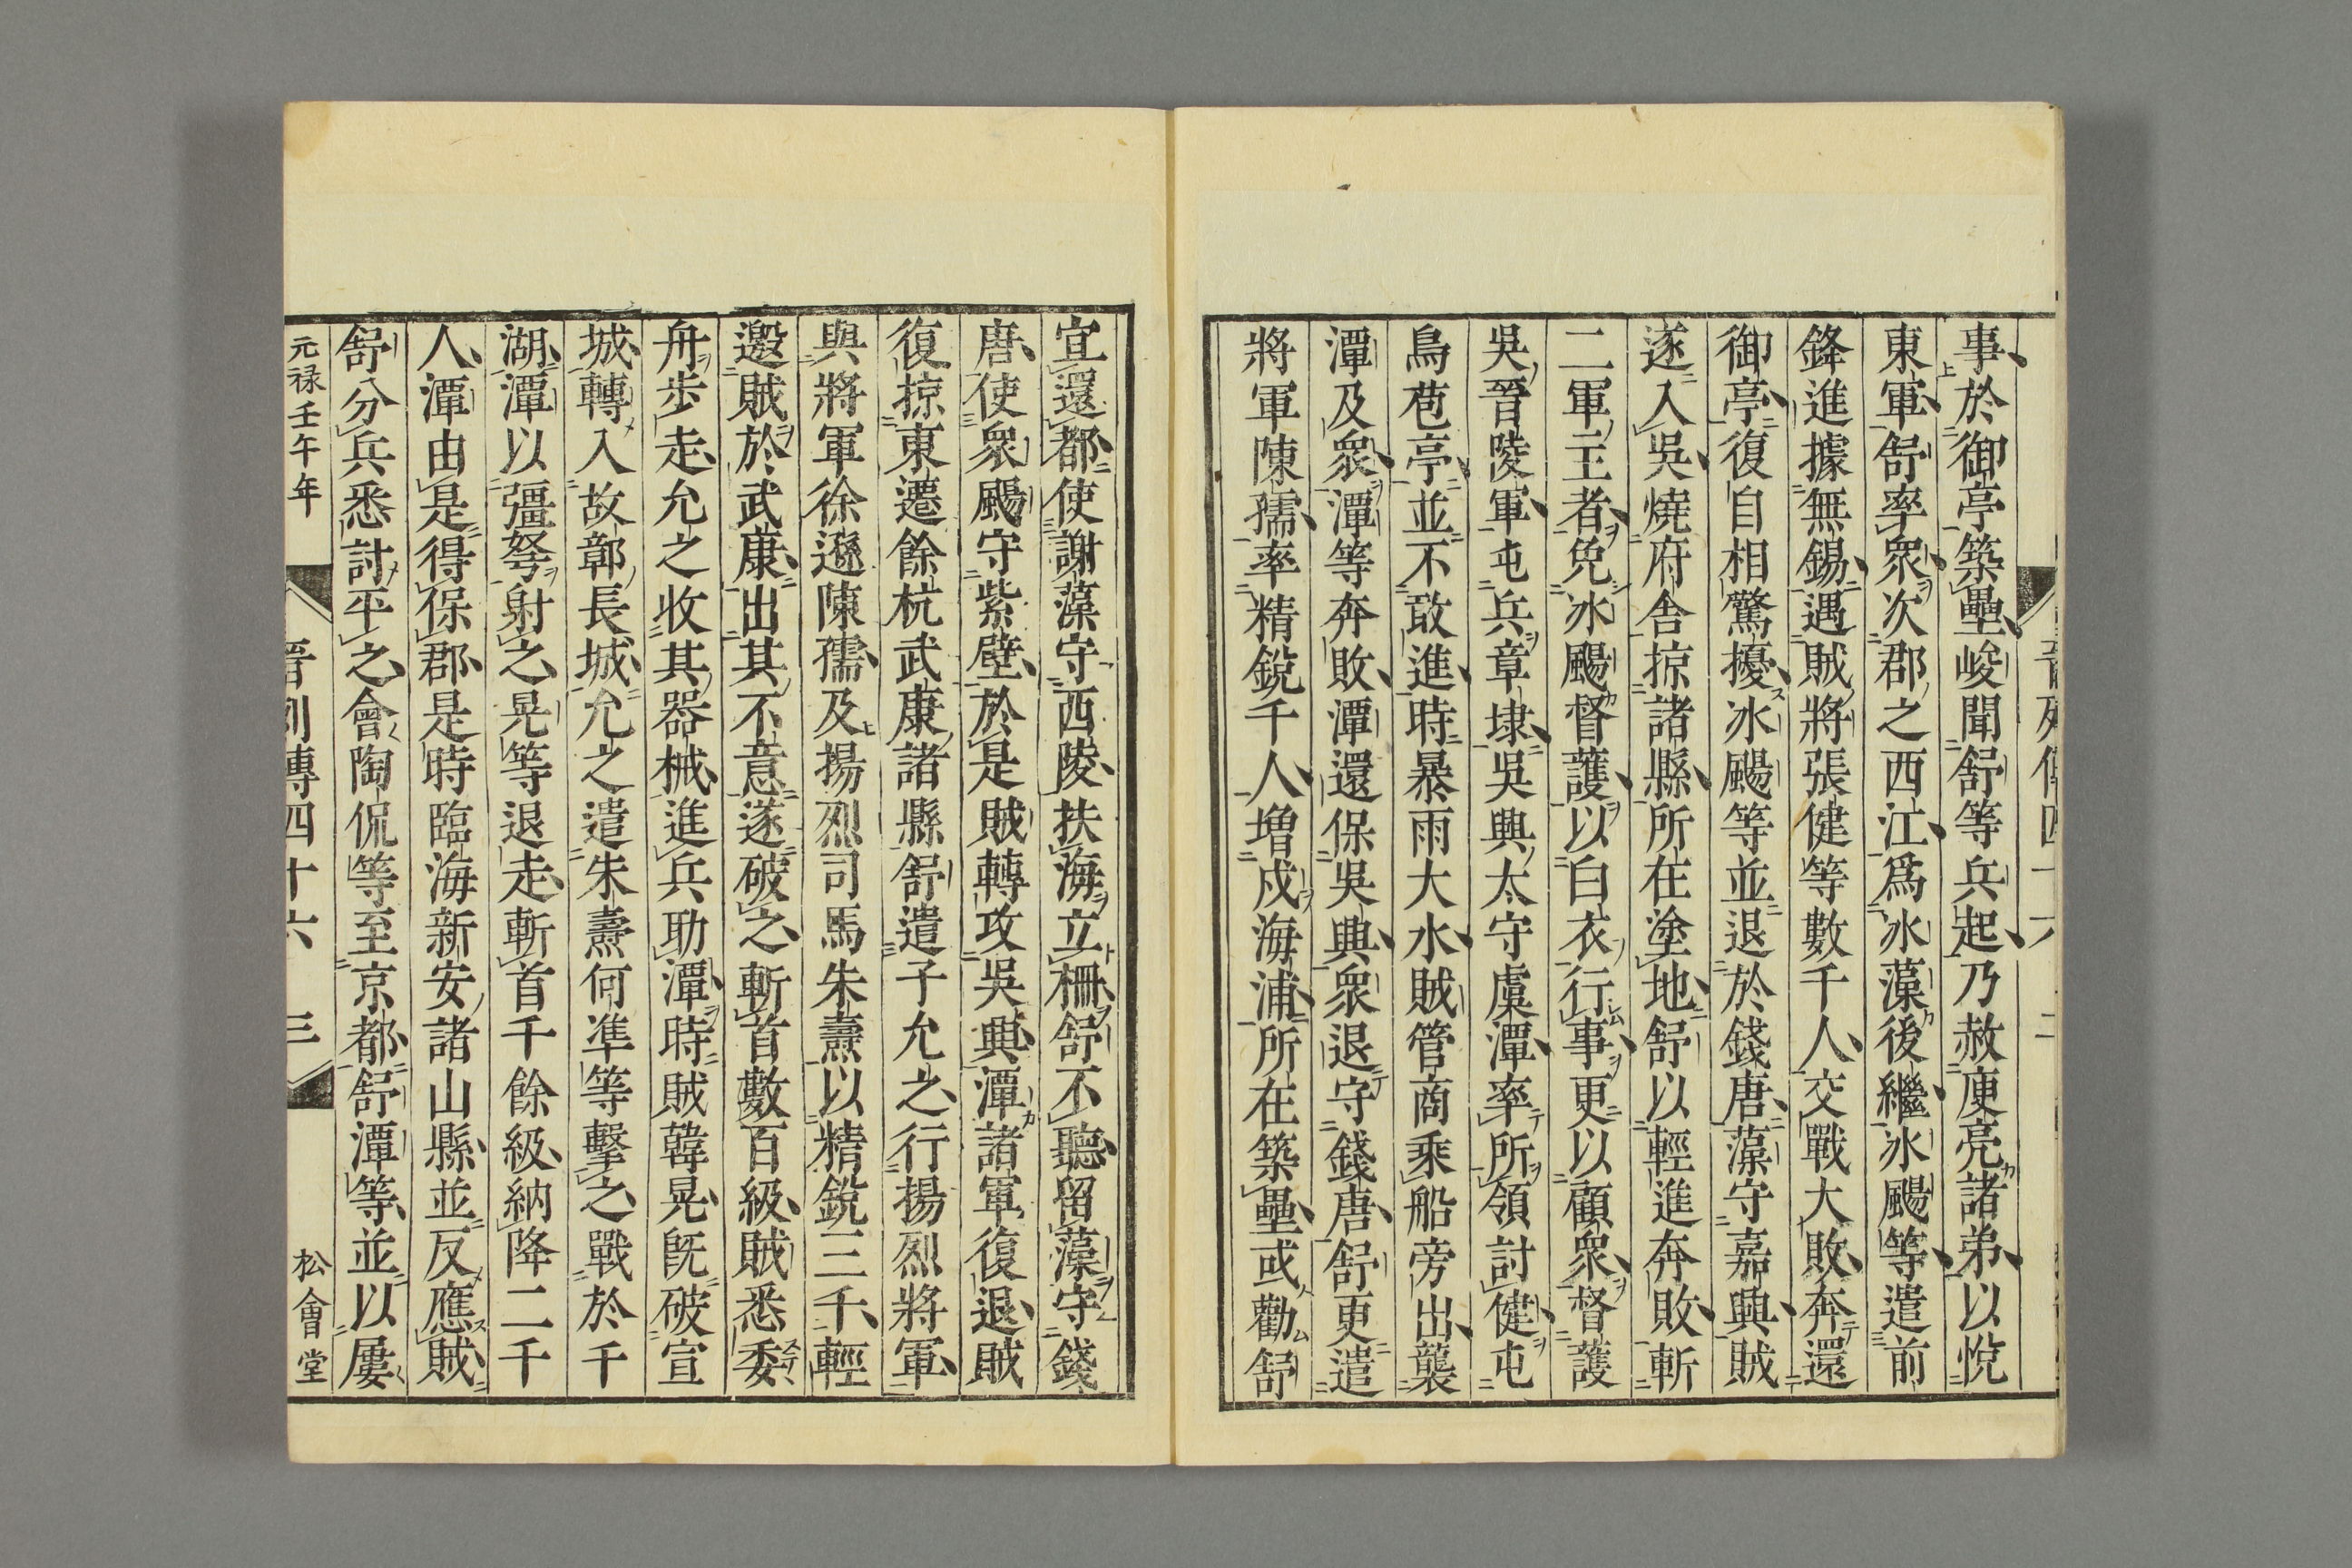 事於御亭築壘峻聞舒等兵起乃赦庾亮諸弟以悅
東軍舒率衆次郡之西江爲冰藻後繼冰颺等遣前
鋒進據無錫遇賊將張健等數千人交戰大敗奔還
御亭復自相驚擾冰颺等並退於錢唐藻守嘉興賊
遂入吳燒府舍掠諸縣所在塗地舒以輕進奔敗斬
二軍主者免冰颺督護以白衣行事更以顧衆督護
吳晉陵軍屯兵章埭吳興太守虞潭率所領討健屯
烏苞亭並不敢進時暴雨大水賊管商乘船旁出襲
潭及衆潭等奔敗潭還保吳興衆退守錢唐舒更遣
將軍陳孺率精銳千人增戍海浦所在築壘或勸舒
宜還都使謝藻守西陵扶海立柵舒不聽留藻守錢
唐使衆颺守紫壁於是賊轉攻吳興潭諸軍復退賊
復掠東遷餘杭武康諸縣舒遣子允之行揚烈將軍
與將軍徐遜陳孺及揚烈司馬朱燾以精銳三千輕
邀賊於武康出其不意遂破之斬首數百級賊悉委
舟步走允之收其器械進兵助潭時賊韓晃旣破宣
城轉入故鄣長城允之遣朱燾何準等擊之戰於千
湖潭以彊弩射之晃等退走斬首千餘級納降二千
人潭由是得保郡是時臨海新安諸山縣並反應賊
舒分兵悉討平之會陶侃等至京都舒潭等並以屢
元禄壬午年 晉列傳四十六 三 松會堂